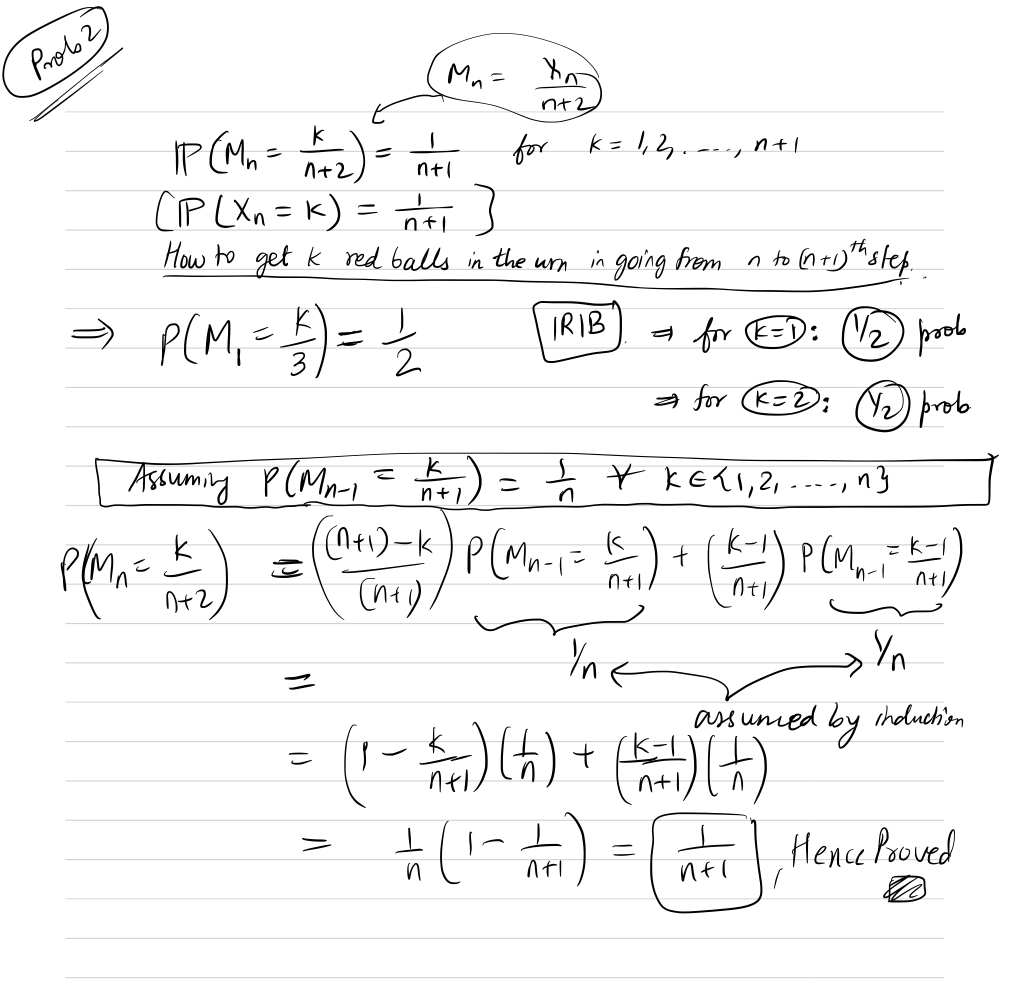 Prob 2
Mₙ = Xₙ/(n+2)
ℙ(Mₙ = k/(n+2)) = 1/(n+1) for k = 1, 2, ...., n+1
[ℙ(Xₙ = k) = 1/(n+1)]
How to get k red balls in the urn in going from n to (n+1)ᵗʰ step.
⇒ P(M₁ = k/3) = 1/2 1R1B ⇒ for k=1: 1/2 prob
⇒ for k=2: 1/2 prob
Assuming P(Mₙ₋₁ = k/(n+1)) = 1/n ∀ k ∈ {1, 2, ....., n}
P(Mₙ = k/(n+2)) = (((n+1)-k)/(n+1)) P(Mₙ₋₁ = k/(n+1)) + ((k-1)/(n+1)) P(Mₙ₋₁ = (k-1)/(n+1))
= 1/n 1/n
assumed by induction
= (1 - k/(n+1))(1/n) + ((k-1)/(n+1))(1/n)
= 1/n (1 - 1/(n+1)) = 1/(n+1), Hence Proved